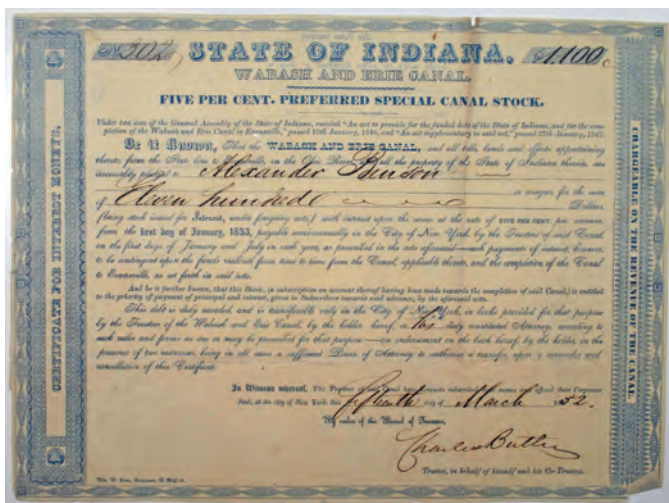 No. 302, STATE OF INDIANA. $1.100
WABASH AND ERIE CANAL.
FIVE PER CENT. PREFERRED SPECIAL CANAL STOCK.
Under two acts of the General Assembly of the State of Indiana, entitled "An act to provide for the funded debt of the State of Indiana, and for the com-
pletion of the Wabash and Erie Canal to Evansville," passed 19th January, 1846, and "An act supplementary to said act," passed 27th January, 1847.
Be it Known, That the WABASH AND ERIE CANAL, and all tolls, lands and effects appertaining
thereto, from the State line to Evansville, on the Ohio River, and all the property of the State of Indiana therein, are
irrevocably pledged to Alexander Benson
or assigns, for the sum
of Eleven hundred Dollars
(being stock issued for Interest, under foregoing acts,) with interest upon the same at the rate of FIVE PER CENT. per annum,
from the first day of January, 1853, payable semi-annually in the City of New York, by the Trustees of said Canal,
on the first days of January and July in each year, as prescribed in the acts aforesaid—such payments of interest, however,
to be contingent upon the funds realized from time to time from the Canal, applicable thereto, and the completion of the Canal
to Evansville, as set forth in said acts.
And be it further known, that this Stock, (a subscription on account thereof having been made towards the completion of said Canal,) is entitled
to the priority of payment of principal and interest, given to Subscribers towards said advance, by the aforesaid acts.
This debt is duly recorded, and is transferable only in the City of New York, in books provided for that purpose
by the Trustees of the Wabash and Erie Canal, by the holder hereof, or his duly constituted Attorney, according to
such rules and forms as are or may be prescribed for that purpose—an endorsement on the back hereof, by the holder, in the
presence of two witnesses, being in all cases a sufficient Power of Attorney to authorize a transfer, upon a surrender and
cancellation of this Certificate.
In Witness whereof, The Trustees of said Canal have hereunto subscribed their names and affixed their Corporate
Seal, at the city of New York, this fifteenth day of March 1852.
By order of the Board of Trustees,
Charles Butler
Trustee, in behalf of himself and his Co-Trustees.
CERTIFICATE FOR INTEREST MONEYS.
CHARGEABLE ON THE REVENUE OF THE CANAL.